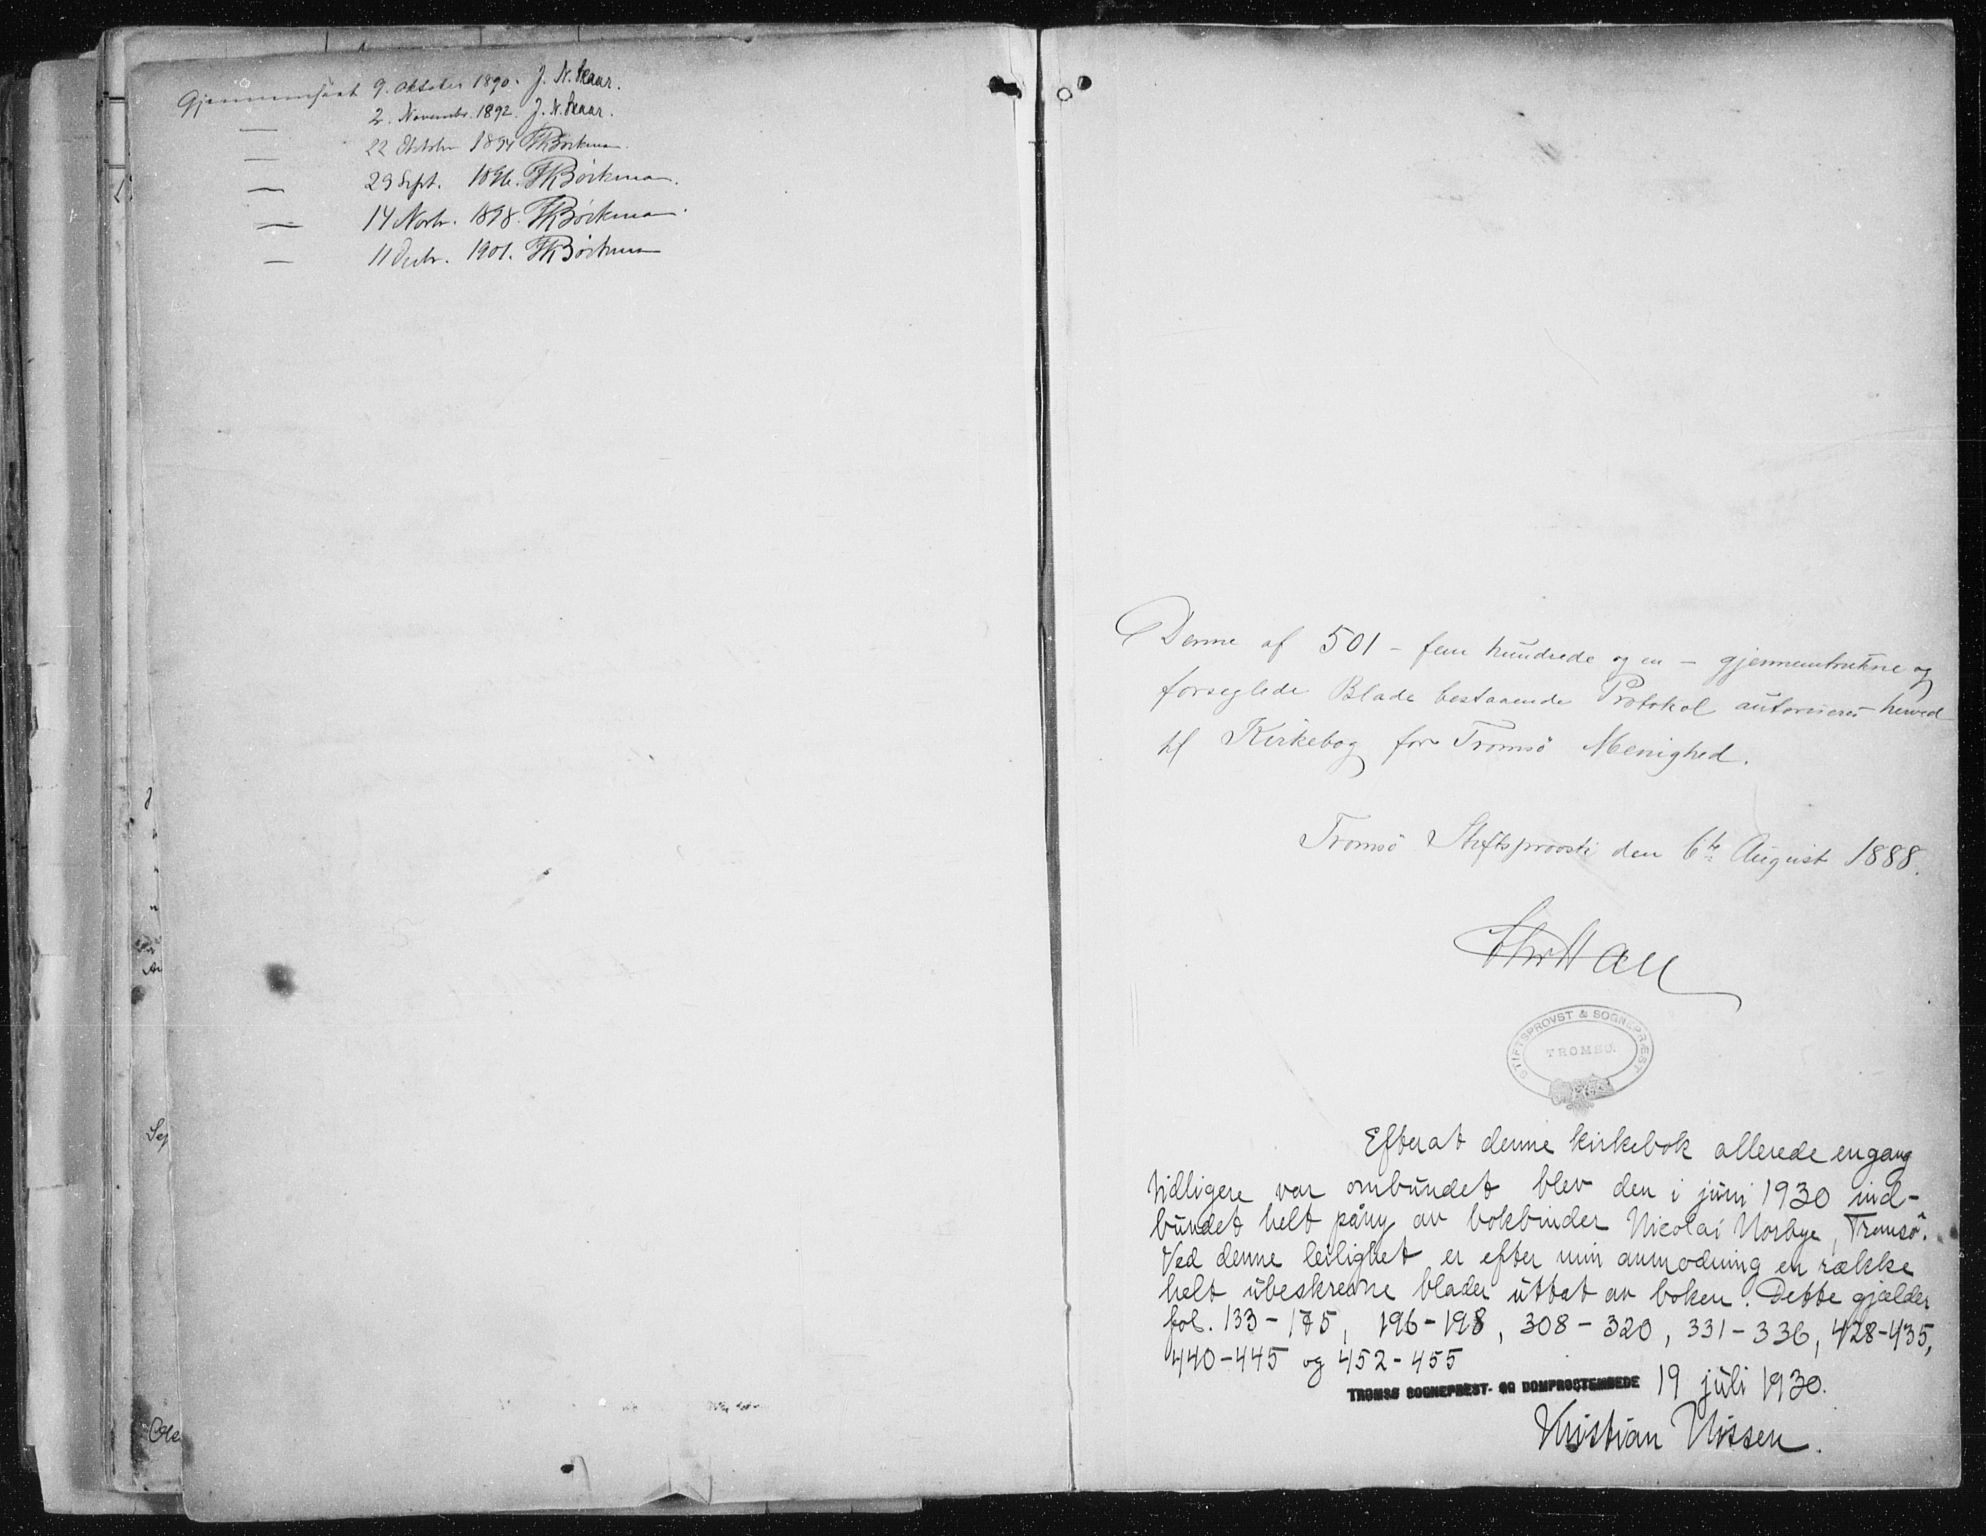 Gjennemseet 9. Oktober 1890. J. N. Skaar.
— 2. Novembr. 1892. J. N. Skaar.
— 22 Oktober 1894 Børkman.
— 29 Sept. 1896. Børkman.
— 14 Novbr. 1898. Børkman.
— 11 Decbr. 1901. Børkman
Denne af 501 – fem hundrede og en – gjennemtrukne og
forseglede Blade bestaaende Protokol autoriseres herved
til Kirkebog for Tromsö Menighed.
Tromsö Stiftsprovsti den 6te August 1888.
STIFTSPROVST & SOGNEPRÆST
TROMSØ.
Efterat denne kirkebok allerede engang
tidligere var ombundet blev den i juni 1930 ind-
bundet helt påny av bokbinder Nicolai Norbye, Tromsö.
Ved denne leilighet er efter min anmodning en række
helt ubeskrevne blader uttat av boken. Dette gjælder
fol. 133–175, 196–198, 308–320, 331–336, 428–435,
440–445 og 452–455
TROMSØ SOGNEPREST- OG DOMPROSTEMBEDE 19 juli 1930.
Kristian Nissen.